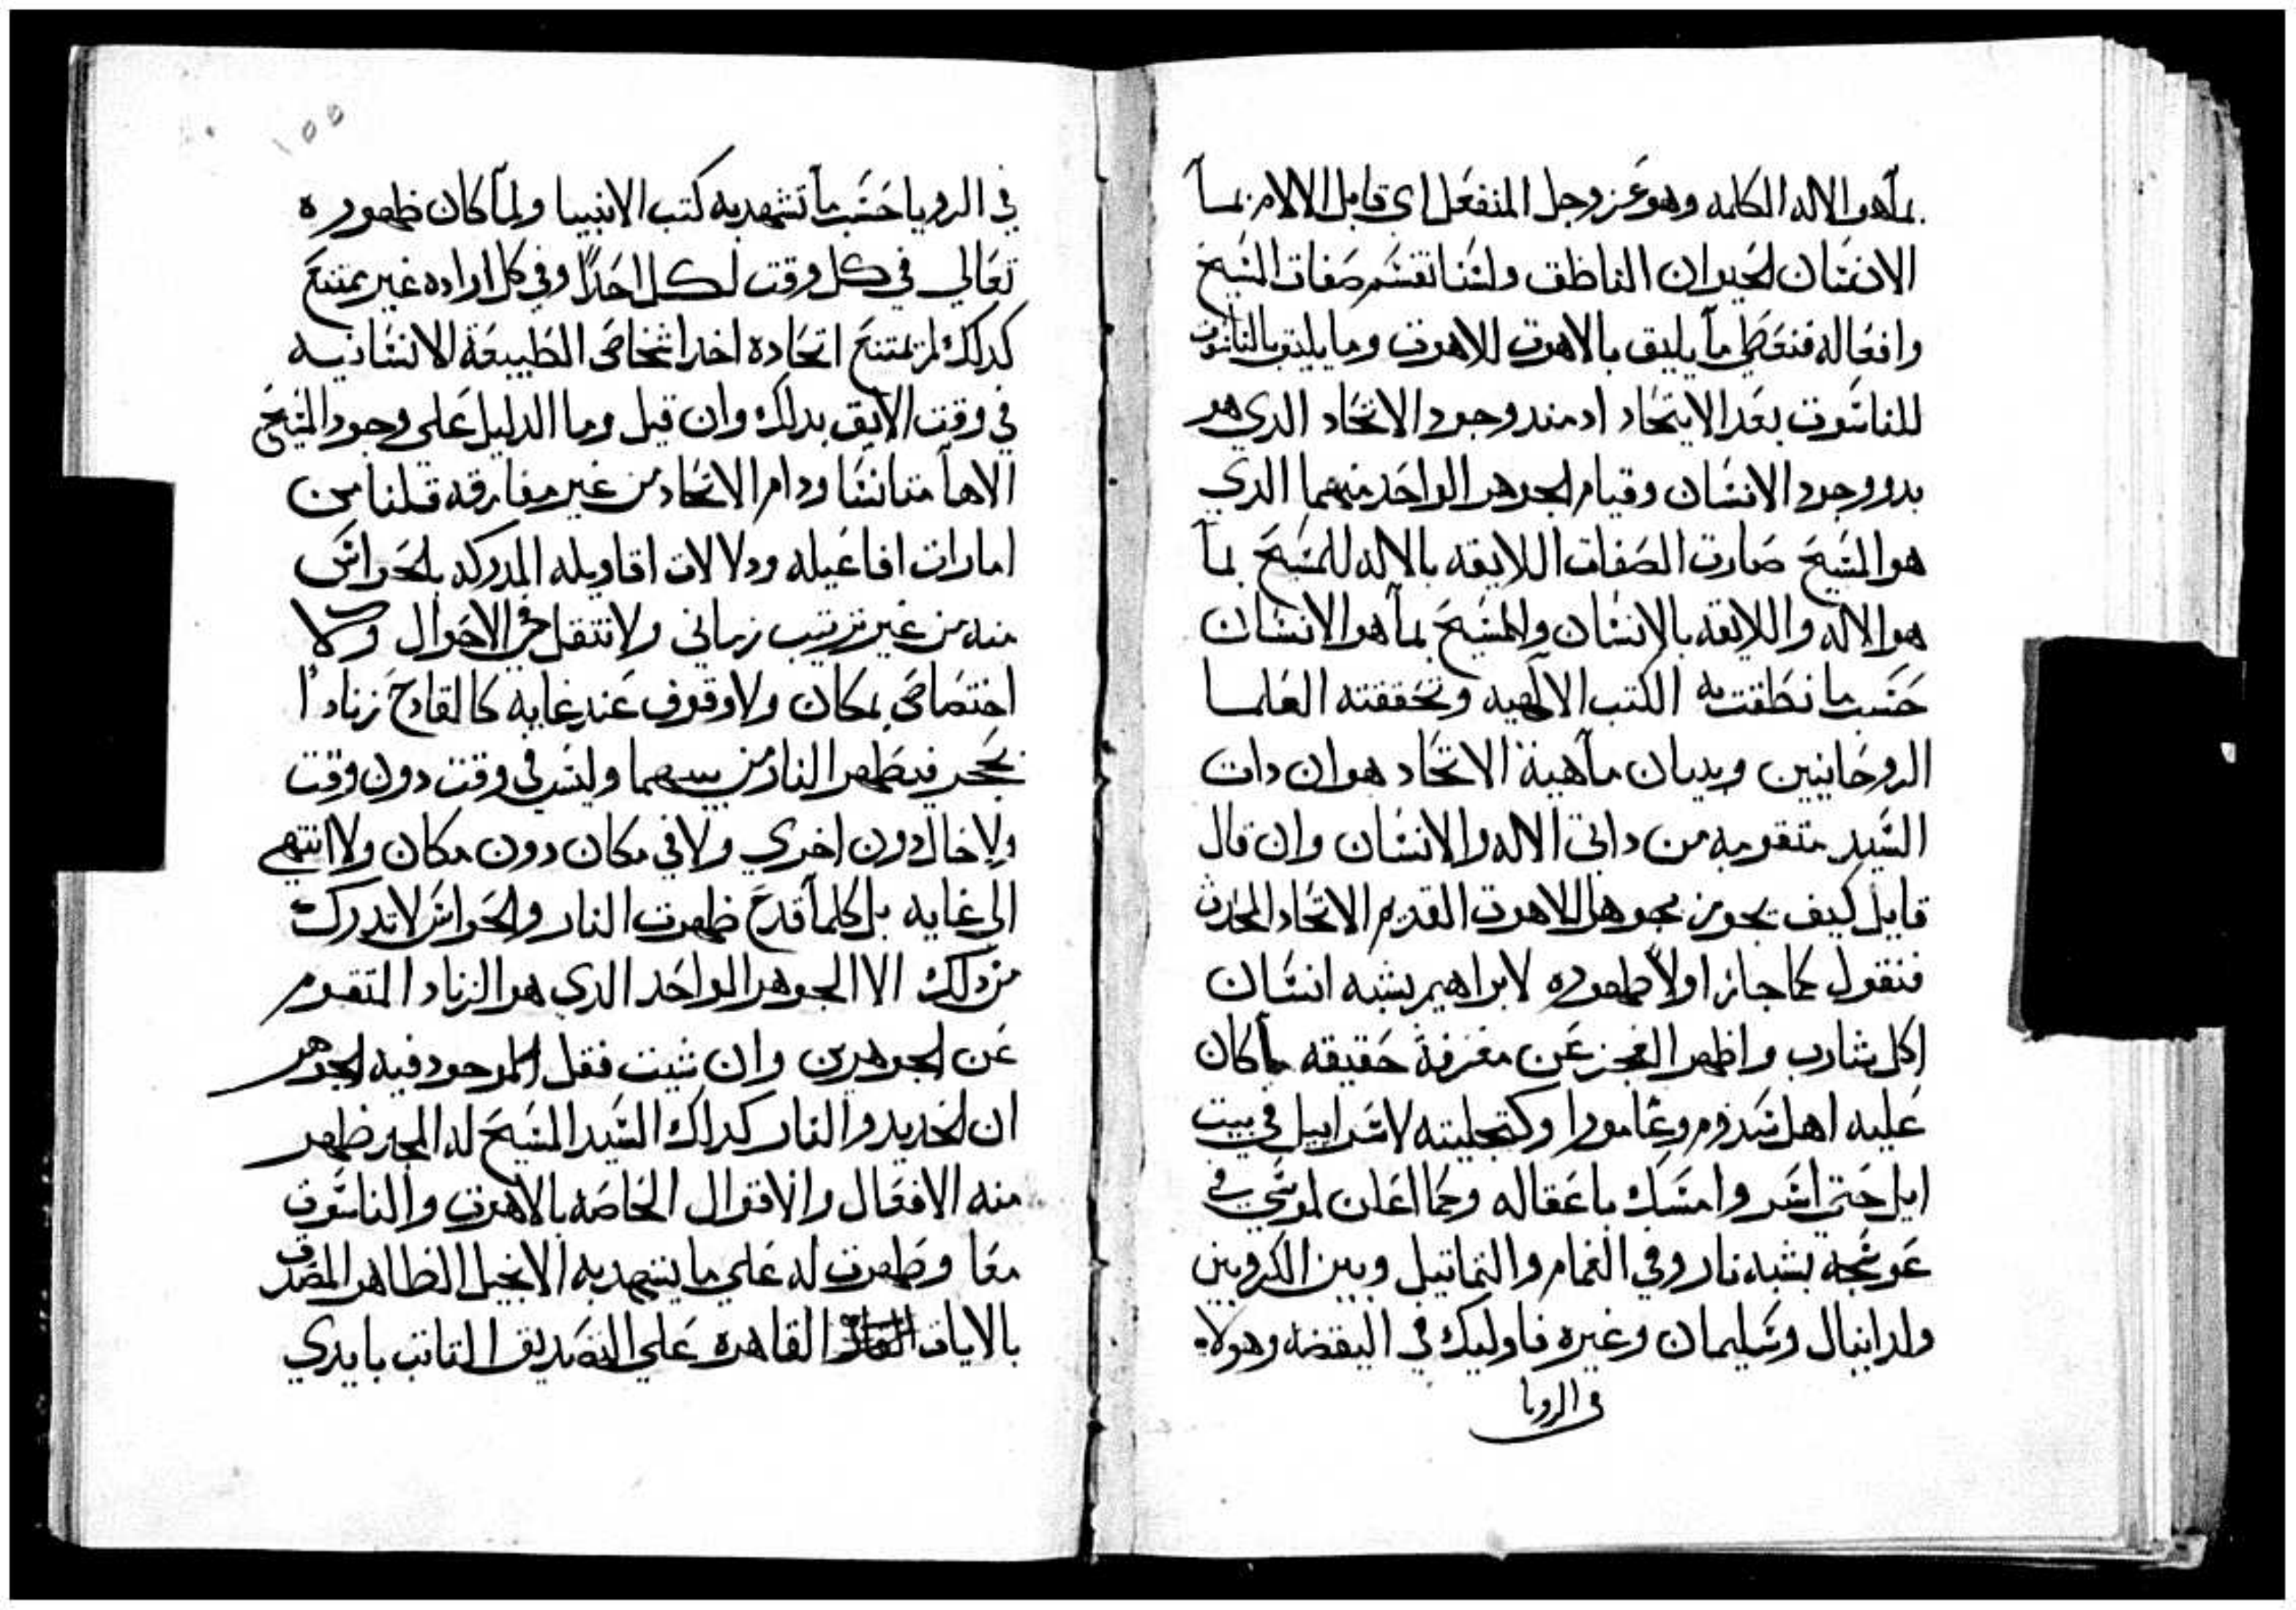 بما هو الاله الكلمه وهو عز وجل المنفعل اي قابل الالام بما
الانسان الحيوان الناطق ولسنا نقسم صفات المسيح
وافعاله فنعطي ما يليق بالاهوت للاهوت وما يليق بالناسوت
للناسوت بعد الايتحاد اد مند وجود الاتحاد الدي هو
بدو وجود الانسان وقيام الجوهر الواحد منهما الدي
هو المسيح صارت الصفات اللايقه بالاله للمسيح بما
هو الاله واللايقه بالانسان والمسيح بما هو الانسان
حسب ما نطقت به الكتب الالهيه وتحققته العلما
الروحانيين وبيان ماهية الاتحاد هو ان دات
السيد متقومه من داتي الاله والانسان وان قال
قايل كيف يجوز بجوهر اللاهوت القديم الاتحاد المحدث
فنقول كما جاز اولا ظهوره لابراهيم بشبه انسان
اكل شارب واظهر العجز عن معرفة حقيقه ما كان
عليه اهل سدوم وغامورا وكتجليته لاسراييل في بيت
ايل حتي اسر وامسك باعقاله وكما اعلن لموسي في
عوسجه بشبه نار وفي الغمام والتماتيل وبين الكروبين
ولدانيال وسليمان وغيره فاوليك في اليقضه وهولاء
في الرويا
١٥٥
في الرويا حسب ما تشهد به كتب الانبيا ولما كان ظهوره
تعالي في كل وقت لكل احدا وفي كل اراده غير ممتنع
كدلك لم يمتنع اتحاده احد اشخاص الطبيعة الانسانيه
في وقت الايق بدلك وان قيل وما الدليل على وجود المسيح
الاها متانسا ودام الاتحاد من غير مفارقه قلنا من
امارات افاعيله ودلالات اقاويله المدركه بالحواس
منه من غير ترتيب زماني ولا تنتقل في الاحوال ولا
اختصاص بمكان ولا وقوف عند غايه كالقادح زنادا
بحجر فيظهر النار من بينهما وليس في وقت دون وقت
ولا حال دون اخري ولا في مكان دون مكان ولا انتهي
الي غايه بل كلما قدح ظهرت النار والحواس لا تدرك
من دلك الا الجوهر الواحد الدي هو الزناد المتقوم
عن الجوهرين وان شيت فقل الموجود فيه الجوهر
ان الحديد والنار كدلك السيد المسيح له المجد ظهر
منه الافعال والاقوال الخاصه بالاهوت والناسوت
معا وظهرت له علي ما يشهد به الانجيل الطاهر المصدق
بالايات القاهره علي التصديق التابت بايدي